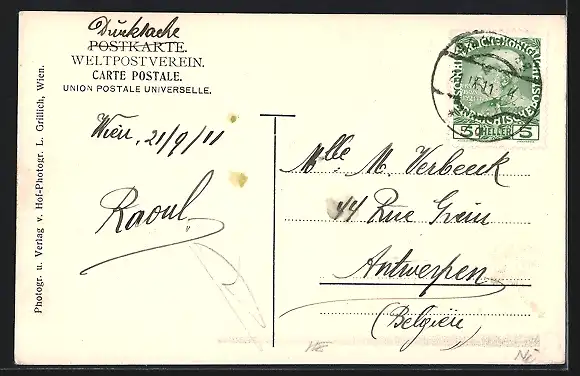 Drucksache
POSTKARTE.
WELTPOSTVEREIN.
CARTE POSTALE.
UNION POSTALE UNIVERSELLE.
Wien, 21/9/11
Raoul
Photogr. u. Verlag v. Hof-Photogr. L. Grillich, Wien.
5 HELLER 5
Mlle M. Verbeeck
44 Rue Grein
Antwerpen
(Belgien)